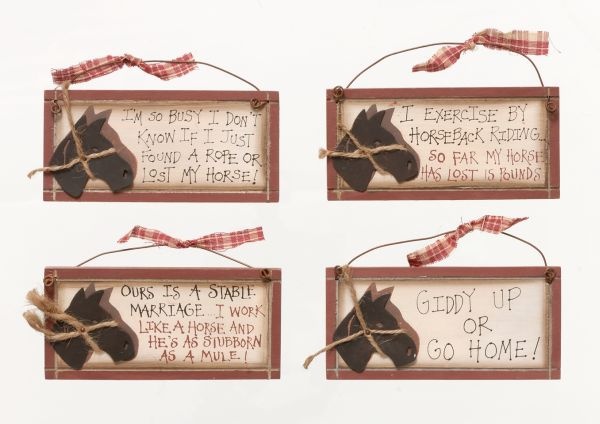 I'M SO BUSY I DON'T
KNOW IF I JUST
FOUND A ROPE OR
LOST MY HORSE!
I EXERCISE BY
HORSEBACK RIDING...
SO FAR MY HORSE
HAS LOST 15 POUNDS
OURS IS A STABLE
MARRIAGE... I WORK
LIKE A HORSE AND
HE'S AS STUBBORN
AS A MULE!
GIDDY UP
OR
GO HOME!